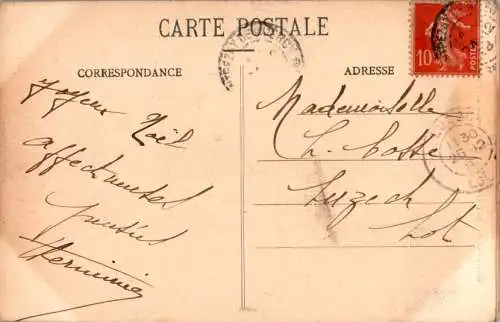 CARTE POSTALE
CORRESPONDANCE
Joyeux Noël
affectueuses
Herminie
ADRESSE
Mademoiselle
Ch. Costes
Luzech
Lot
10
POSTES